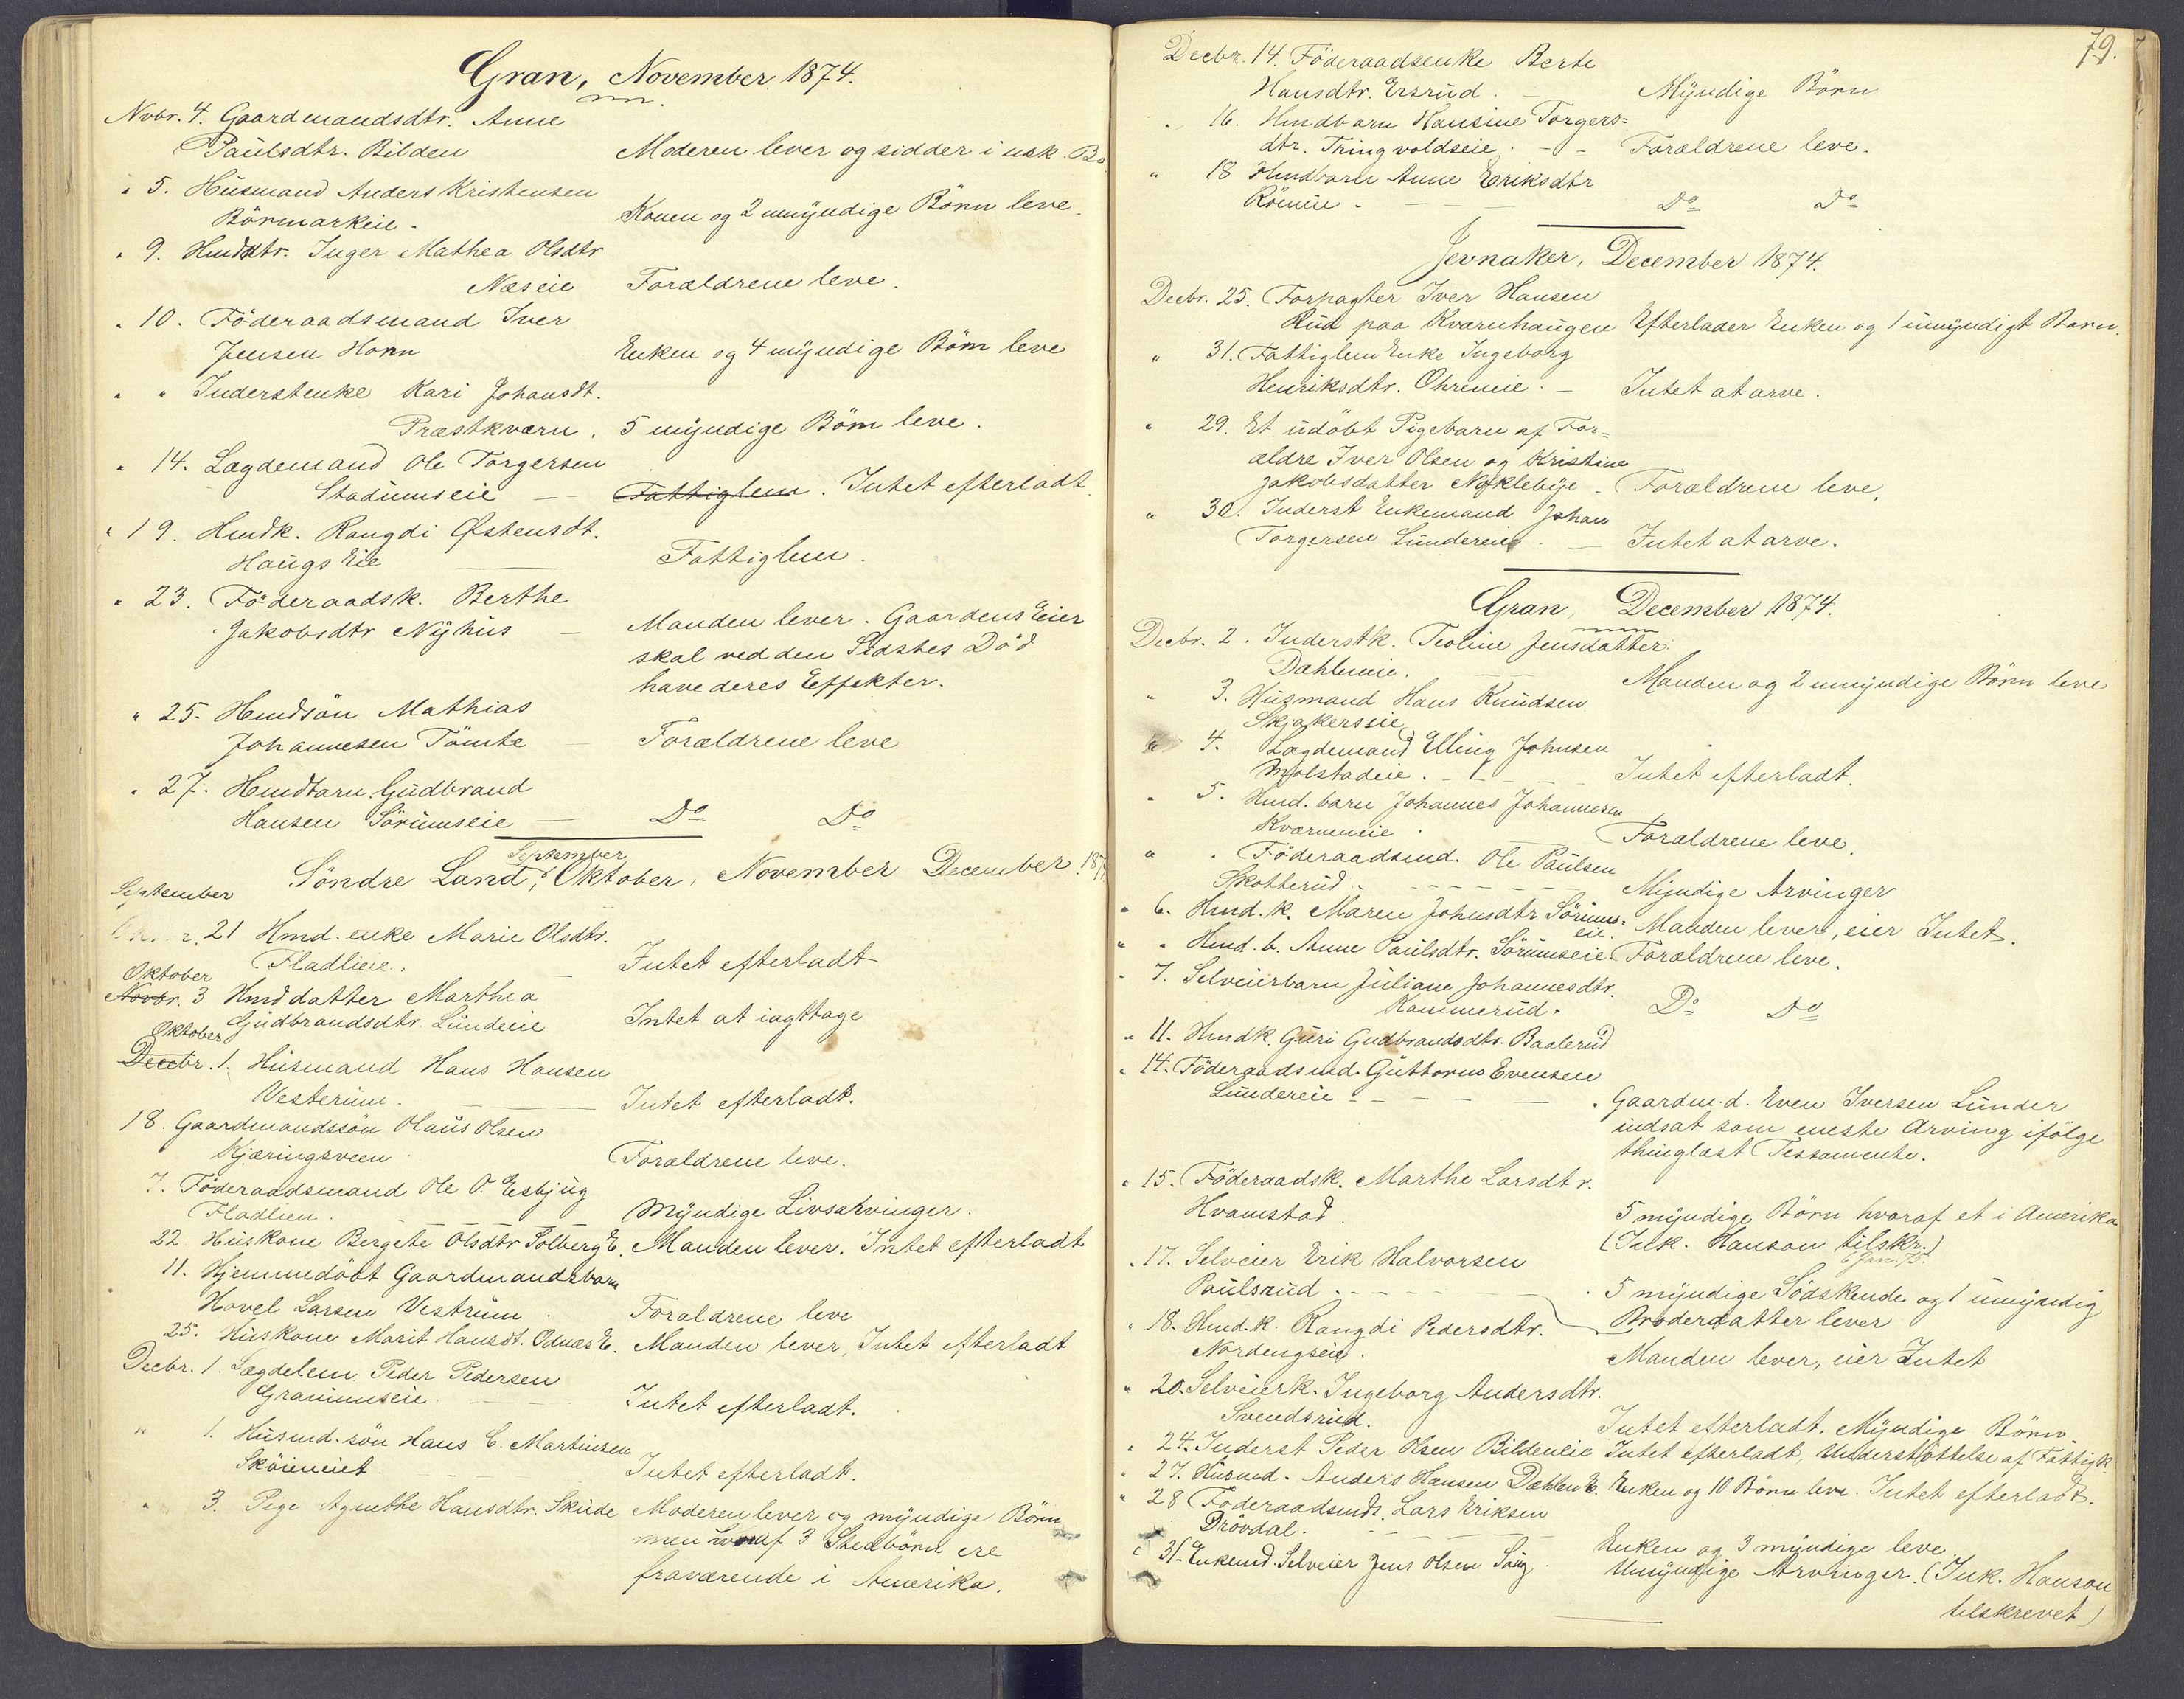 Gran, November 1874.
Nvbr. 4. Gaardmandsdtr. Anne
Paulsdtr. Bilden Moderen lever og sidder i usk. Bo
" 5. Husmand Anders Kristensen
Börmarkeie. Konen og 2 umyndige Börn leve.
" 9. Hmddtr. Inger Mathea Olsdtr
Næseie Forældrene leve.
" 10. Föderaadsmand Iver
Jensen Horn Enken og 4 myndige Börn leve
" " Inderstenke Kari Johansdt.
Præstkværn. 5 myndige Börn leve.
" 14. Lægdemand Ole Torgersen
Stadumseie — Fattiglem. Intet efterladt.
" 19. Hmdk. Rangdi Østensdt.
Haugs Eie — Fattiglem.
" 23. Föderaadsk. Berthe
Jakobsdtr Nyhus — Manden lever. Gaardens Eier
skal ved den Sidstes Död
have deres Effekter.
" 25. Hmdsön Mathias
Johannesen Tömte — Forældrene leve
" 27. Hmdbarn Gudbrand
Hansen Sörumseie — Do Do
September
Söndre Land, Oktober, November December 187
September
21 Hmd. enke Marie Olsdtr.
Fladlieie. — Intet efterladt
Oktober
Novbr. 3 Hmddatter Marthea
Gudbrandsdtr. Lundeie Intet at iagttage
Oktober
Decbr. 1. Husmand Hans Hansen
Vesterum. — Intet efterladt.
18. Gaardmandssön Olaus Olsen
Kjæringsveen. Forældrene leve.
7. Föderaadsmand Ole O. Esbjug
Fladlien. Myndige Livsarvinger.
22. Huskone Bergete Olsdtr Solberg E. Manden lever. Intet efterladt
11. Hjemmedöbt Gaardmandsbarn
Hovel Larsen Vestrum. Forældrene leve
25. Huskone Marit Hansdt. Odnæs E. Manden lever, Intet efterladt
Decbr. 1. Lægdelem Peder Pedersen
Granumseie. — Intet efterladt.
" 1. Husmd. sön Hans C. Martinsen
Sköieneiet Intet efterladt.
" 3. Pige Agnethe Hansdtr. Skude Moderen lever og myndige Börn
men hvoraf 3 Stedbörn ere
fraværende i Amerika.
79.
Decbr. 14. Föderaadsenke Berte
Hansdtr. Ersrud. — Myndige Börn
" 16. Hmdbarn Hansine Torgers=
dtr. Tringvoldseie. — Forældrene leve.
" 18 Hmdbarn Anne Eriksdtr
Röineie — Do Do
Jevnaker, December 1874.
Decbr. 25. Forpagter Iver Hansen
Rud paa Kværnhaugen Efterlader Enken og 1 umyndigt Barn.
" 31. Fattiglem Enke Ingeborg
Henriksdtr. Ohreneie. — Intet at arve.
" 29. Et udöbt Pigebarn af For=
ældre Iver Olsen og Kristine
Jakobsdatter Nøklebye. Forældrene leve,
" 30. Inderst Enkemand Johan
Torgersen Lundereie. — Intet at arve.
Gran, December 1874.
Decbr. 2. Inderstk. Teoline Jensdatter
Dahleneie. Manden og 2 umyndige Börn leve
" 3. Husmand Hans Knudsen
Skjakerseie
" 4. Lægdemand Elling Johnsen
Molstadeie. — Intet efterladt.
" 5. Hmd. barn Johannes Johannesen
Kværneneie. Forældrene leve.
" " Föderaadsmd. Ole Paulsen
Skotterud. — Myndige Arvinger
" 6. Hmd. k. Maren Johnsdtr Sörums=
eie. Manden lever, eier Intet.
" " Hmd. b. Anne Paulsdtr. Sörumseie. Forældrene leve.
" 7. Selveierbarn Juliane Johannesdtr.
Kammerud. Do Do
" 11. Hmdk. Guri Gudbrandsdtr. Baalerud
" 14. Föderaadsmd. Guttorm Evensen
Lundereie — Gaardm.d. Even Iversen Lunder
indsat som eneste Arving ifölge
thinglæst Testamente.
" 15. Föderaadsk. Marthe Larsdtr.
Hvamstad. 5 myndige Börn hvoraf et i Amerika
(Ink. Hanson tilskr.)
6 Jan. 75.
" 17. Selveier Erik Halvorsen
Paulsrud. — 5 myndige Södskende og 1 umyndig
Broderdatter lever
" 18. Hmd. k. Rangdi Pedersdtr.
Nordengseie. Manden lever, eier Intet
" 20. Selveierk. Ingeborg Andersdtr.
Svendsrud. Intet efterladt. Myndige Börn.
" 24. Inderst Peder Olsen Bildeneie Intet efterladt, Understöttelse af Fattigk.
" 27. Husmd. Anders Hansen Dæhlen E. Enken og 10 Börn leve. Intet efterladt.
" 28 Föderaadsmd. Lars Eriksen
Prövdal. — Enken og 3 myndige leve.
" 31. Enkemd. Selveier Jens Olsen Umyndige Arvinger. (Ink. Hanson
tilskrevet)